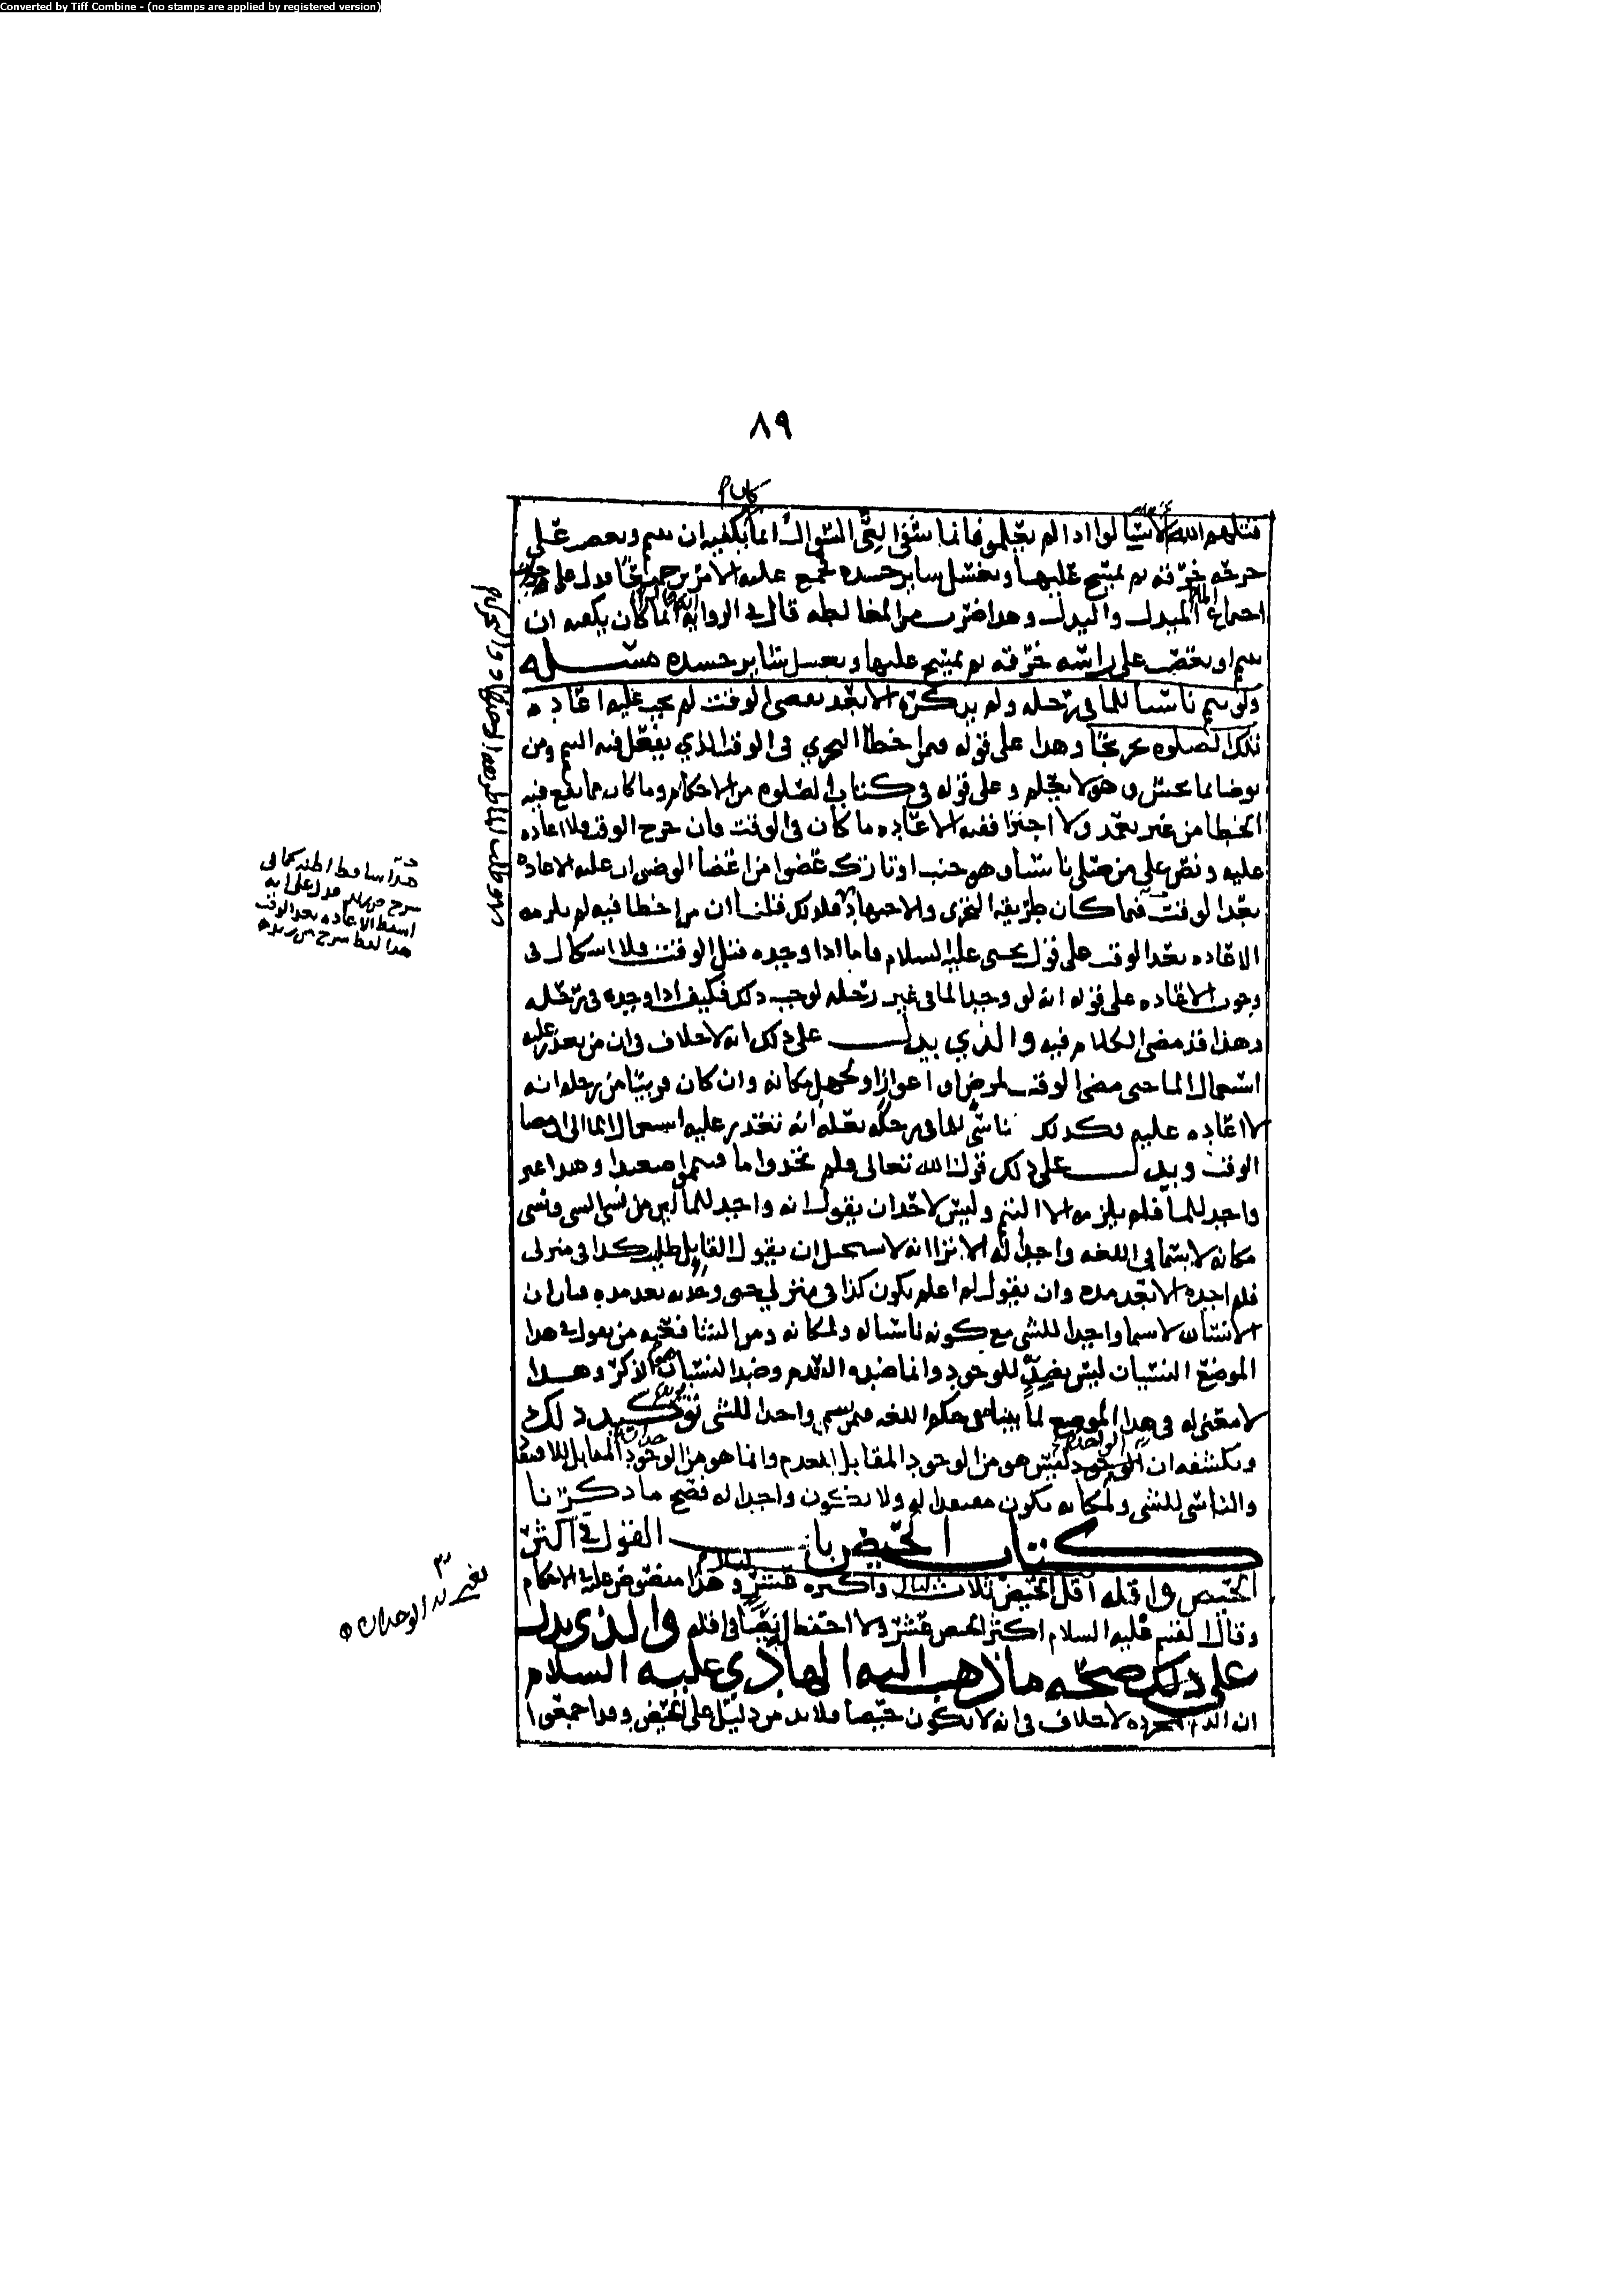 Converted by Tiff Combine - (no stamps are applied by registered version)
٨٩
قتلهم الله الا سالوا اذا لم يعلموا فانما شفى العي السوال انما يكفيه ان يتيمم ويعصر على
جرحه خرقة ثم يمسح عليها ويغسل ساير جسده فجمع عليه الامرين جميعًا فدل على جواز
اجتماع المبدل والبدل وهذا ضرب من المغالطه قال في الرواية انما كان يكفيه ان
يتيمم او يعصب على راسه خرقه ثم يمسح عليها ويغسل ساير جسده مسله
ولو تيمم ناسيا للما في رحله ولم يذكره الا بعد مضي الوقت لم يجب عليه اعاده
تلك الصلوه تخريجًا وهذا على قوله فيمن اخطا التحري في الوقت الذي يفعل فيه التيمم ومن
توضا بما نجس وهو لا يعلم وعلى قوله في كتاب الصلوه من الاحكام وما كان مما يقع فيه
الخطا من غير تعمد ولا اجتزا ففيه الاعاده ما كان في الوقت فان خرج الوقت فلا اعاده
عليه ونص على من صلى ناسيا وهو جنب او تارك عضوا من اعضا الوضو ان عليه الاعاده
بعد الوقت فيما كان طريقه التحري والاجتهاد فلذلك قلنا ان من اخطا فيه لم يلزمه
الاعاده بعد الوقت على قول يحيى عليه السلام فاما اذا وجده قبل الوقت فلا اشكال في
وجوب الاعاده على قوله انه لو وجد الما في غير رحله لوجب ذلك فكيف اذا وجده في رحله
وهذا قد مضى الكلام فيه والذي يدل على ذلك انه لا خلاف في ان من تعذر عليه
استعمال الما حتى مضى الوقت لمرض او اعواز او لجهل مكانه وان كان قريبا من رحله انه
لا اعاده عليه فكذلك ناسي الما في رحله بعله انه تعذر عليه استعمال الما الى انقضا
الوقت ويدل على ذلك قول الله تعالى فلم تجدوا ما فتيمموا صعيدا وهذا غير
واجد للما فلم يلزمه الا التيمم وليس لاحد ان يقول انه واجد للما لان من نسي الشي ونسي
مكانه لا يسما في اللغه واجدا له الا ترا انه لا يستحيل ان يقول القايل طلبت كذا في منزلي
فلم اجده الا بعد مده وان يقول لم اعلم بكون كذا في منزلي حتى وجدته بعد مده فبان ان
الانسان لا يسما واجدا للشي مع كونه ناسيا له ولمكانه ومن الشافعيه من يقول في هذا
الموضع النسيان ليس بضد للوجود وانما ضده العدم وضد النسيان هو الذكر وهذا
لا معنى له في هذا الموضع لما بيناه في حكم اللغه فيمن يسمى واجدا للشي يوكد ذلك
ويكشفه ان الوجود ليس هو من الوجود المقابل للعدم وانما هو من الوجود المقابل للافتقاد
والناسي للشي ولمكانه يكون مفتقدا له ولا يكون واجدا له فصح ما ذكرنا
كتاب الحيض باب القول في اكثر
الحيض واقله اقل الحيض ثلاث ليال واكثره عشر وهذا منصوص عليه في الاحكام
وقال القسم عليه السلام اكثر الحيض عشر ولا احفظ نصًا في اقله والذي يدل
على ذلك صحه ما ذهب اليه الهادي عليه السلام
ان الدم لا خلاف في انه لا يكون حيضا فلا بد من دليل على الحيض وقد اجمعوا